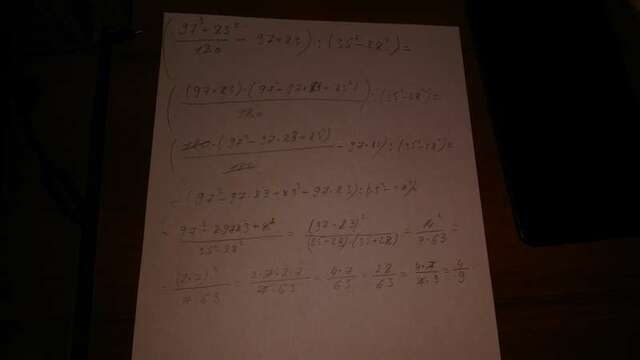 (97³+83³/180 - 97·83) : (35²-28²)=
((97+83)·(97²-97·83+83²)/180) : (35²-28²)=
(180·(97²-97·83+83²)/180 - 97·83) : (35²-28²)=
=(97²-97·83+83²-97·83) : (35²-28²)
= 97²-2·97·83+83²/35²-28² = (97-83)²/(35-28)·(35+28) = 14²/7·63 =
= (2·7)²/7·63 = 2·7·2·7/7·63 = 4·7/63 = 28/63 = 4·7/7·3 = 4/9